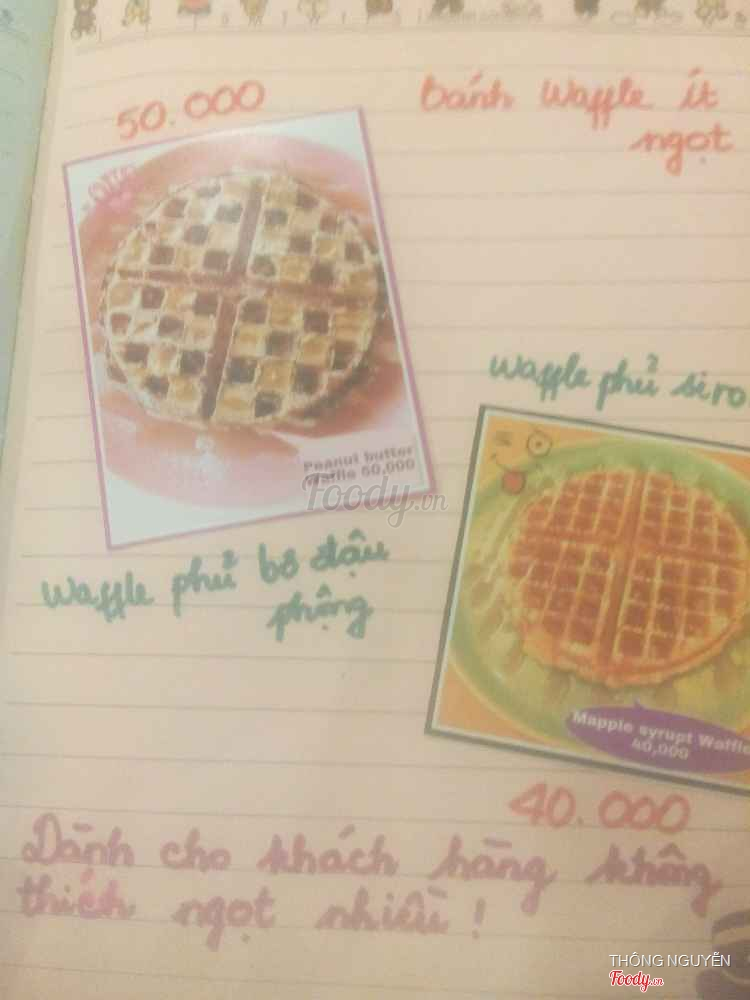 50.000
bánh waffle ít
ngọt
Peanut butter
Waffle 50,000
Foody.vn
waffle phủ siro
waffle phủ bơ đậu
phộng
Mapple syrupt Waffle
40,000
40.000
Dành cho khách hàng không
thích ngọt nhiều!
THÔNG NGUYỄN
Foody.vn